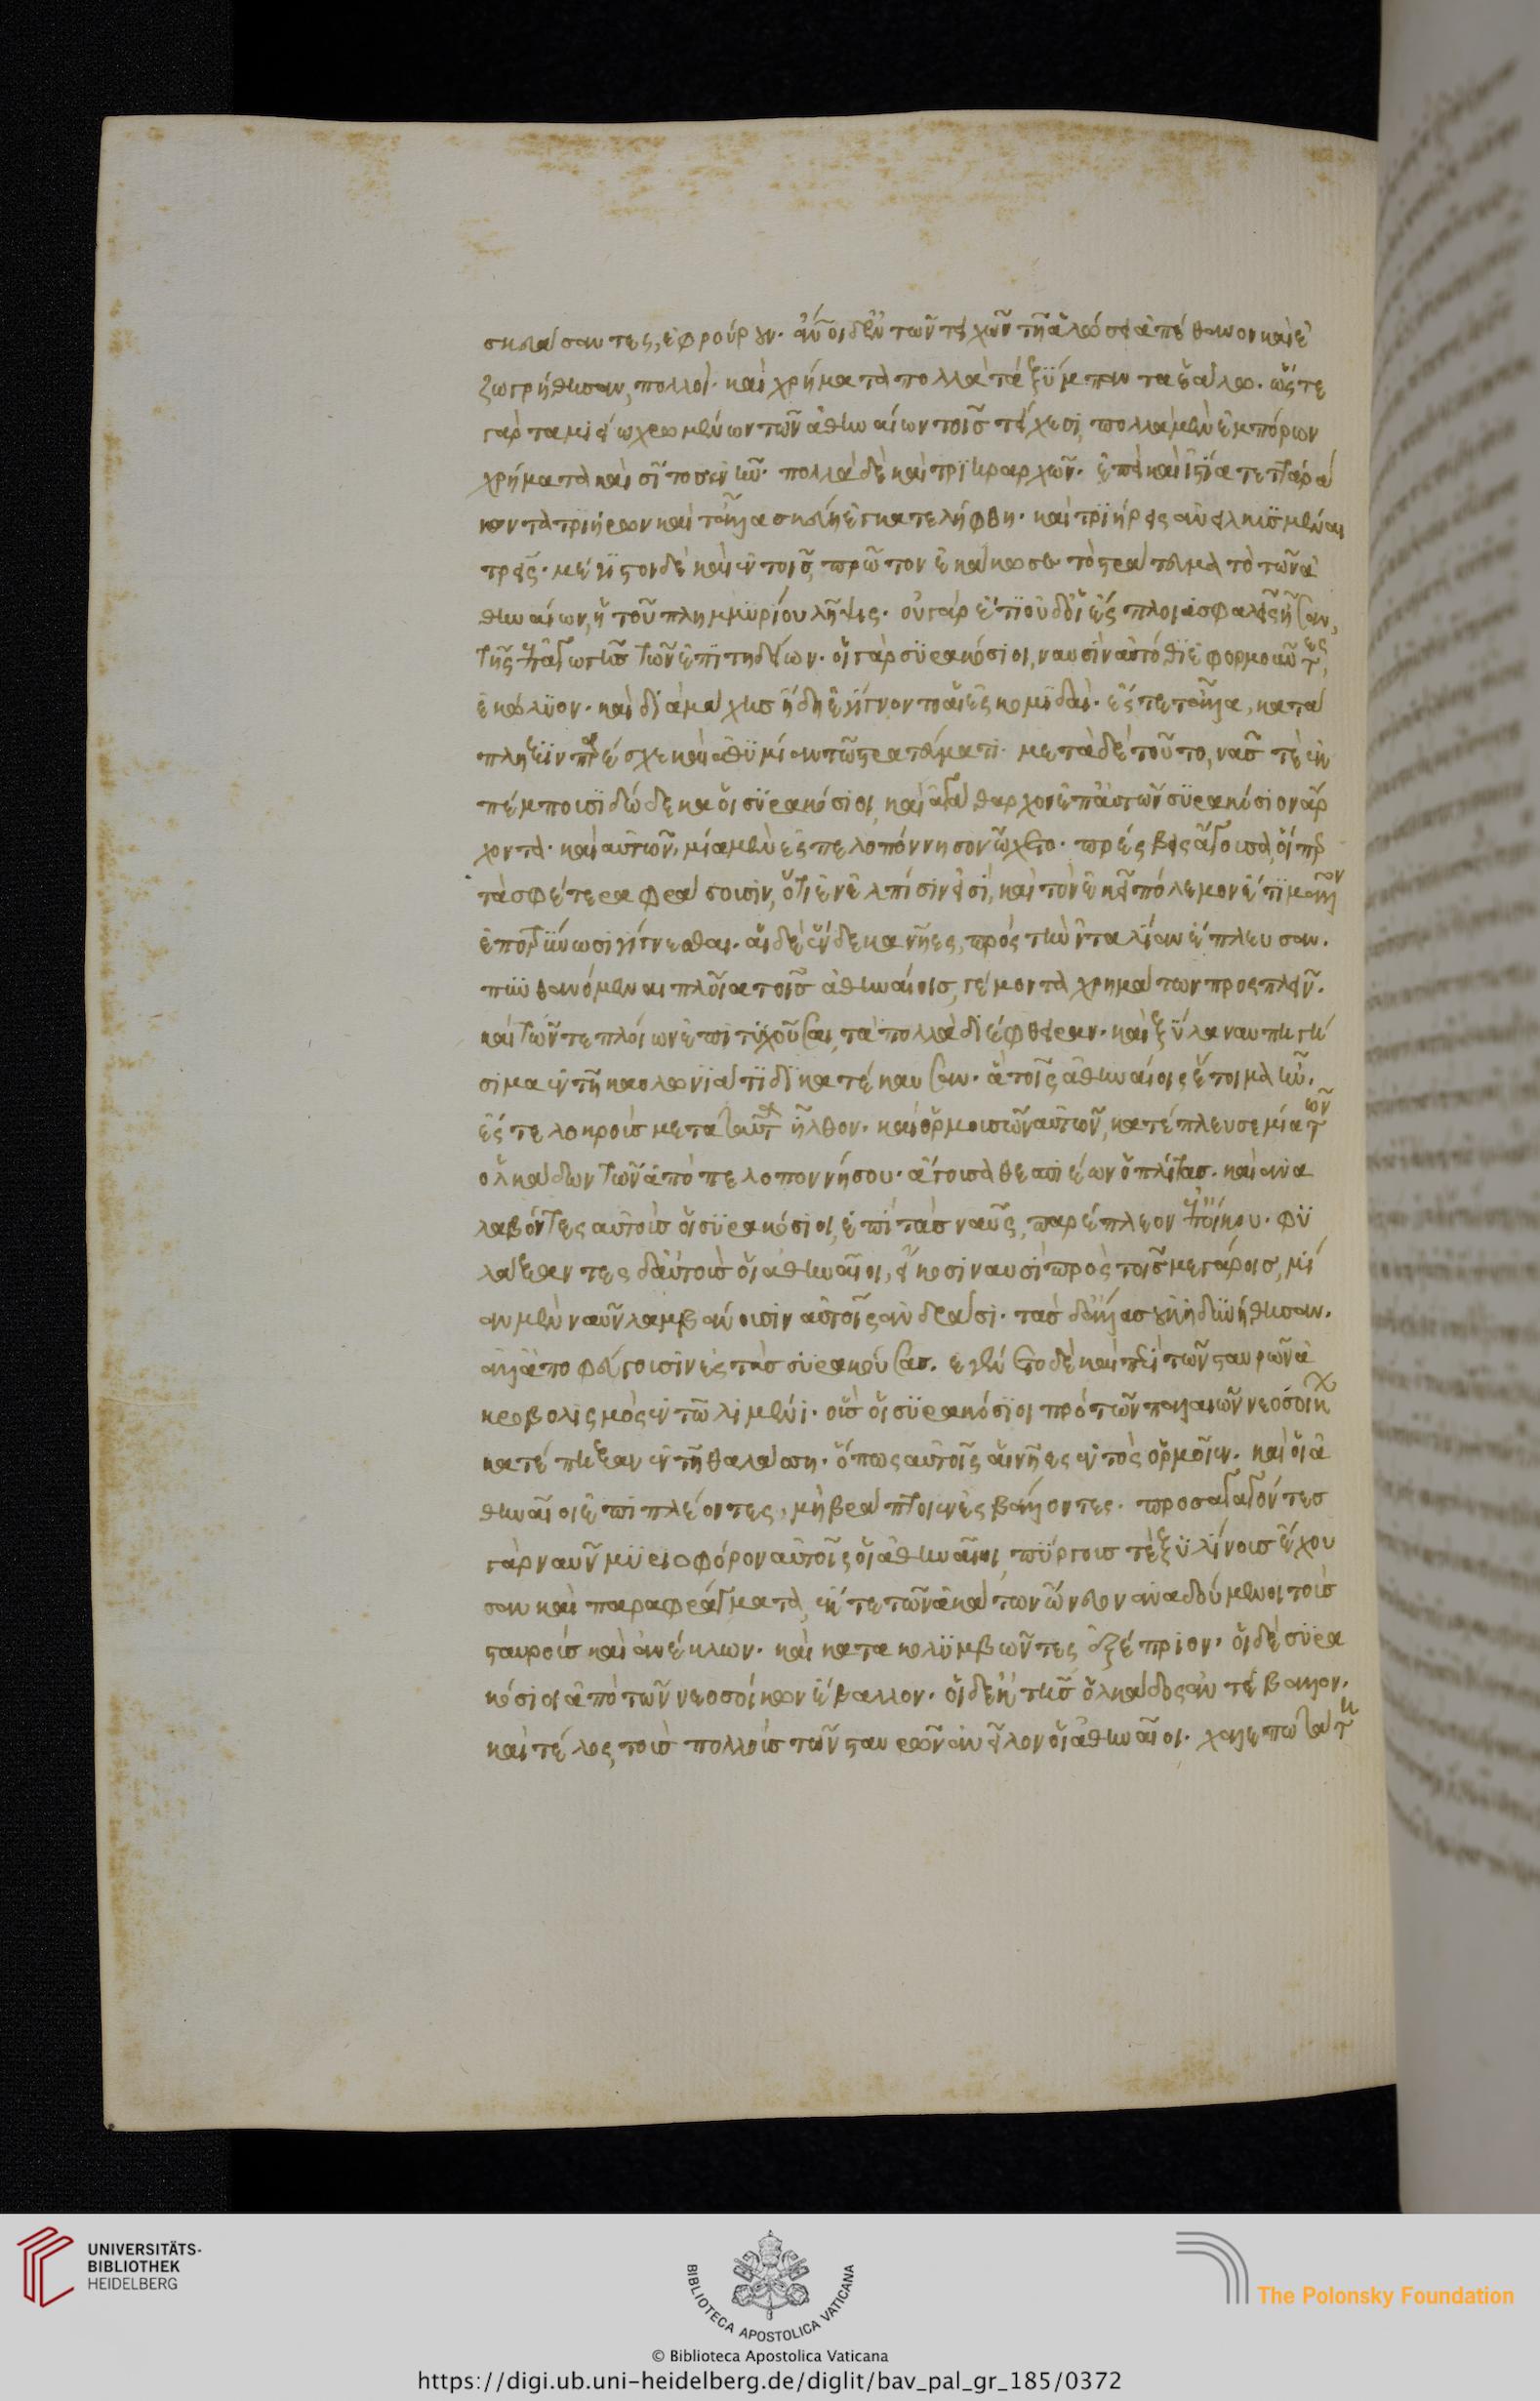 σκευάσαντες, ἐφρούρουν. ἄνοι δ' ἐν τῶν τειχῶν τῇ ἁλώσει ἀπέθανον καὶ ἐ
ζωγρήθησαν, πολλοί. καὶ χρήματα πολλὰ τὰ ξύμπαντα ἑάλω. ὥστε
γὰρ ταμιείω χρωμένων τῶν ἀθηναίων τοῖς τείχεσι, πολλὰ μὲν ἐμπόρων
χρήματα καὶ σῖτος ἐνῆν. πολλὰ δὲ καὶ τριηραρχῶν. ἐπεὶ καὶ ἱστία τετταρά
κοντα τριήρων καὶ τἄλλα σκεύη ἐγκατελήφθη. καὶ τριήρεις ἀνειλκυσμέναι
τρεῖς. μέγιστον δὲ καὶ ἐν τοῖς, πρῶτον ἐκάκωσε τὸ στράτευμα τὸ τῶν ἀ
θηναίων, ἡ τοῦ πλημμυρίου λῆψις. οὐ γὰρ ἔτι οὐδ' οἱ ἔςπλοι ἀσφαλεῖς ἦσαν,
τῆς ἐπαγωγῆς τῶν ἐπιτηδείων. οἱ γὰρ συρακόσιοι, ναυσὶν αὐτόθι ἐφορμοῦντες,
ἐκώλυον. καὶ διὰ μάχης ἤδη ἐγίγνοντο αἱ ἐςκομιδαί. ἔς τε τἄλλα, κατά
πληξιν παρέσχε καὶ ἀθυμίαν τῶ στρατεύματι. μετὰ δὲ τοῦτο, ναῦς τὲ ἐκ
πέμπουσι δώδεκα οἱ συρακόσιοι, καὶ ἀγάθαρχον ἐπ' αὐτῶν συρακόσιον ἄρ
χοντα. καὶ αὐτῶν, μία μὲν ἐς πελοπόννησον ὤχετο. πρέςβεις ἄγουσα, οἵπερ
τὰ σφέτερα φράσουσιν, ὅτι ἐν ἐλπίσιν εἰσί, καὶ τὸν ἐκεῖ πόλεμον ἔτι μᾶλλον
ἐποτρύνωσι γίγνεσθαι. αἱ δὲ ἕνδεκα νῆες, πρὸς τὴν ἰταλίαν ἔπλευσαν.
πυνθανόμεναι πλοῖα τοῖς ἀθηναίοις, γέμοντα χρημάτων προςπλεῖν.
καὶ τῶν τε πλοίων ἐπιτυχοῦσαι, τὰ πολλὰ διέφθειραν. καὶ ξύλα ναυπηγή
σιμα ἐν τῇ καυλωνιάτιδι κατέκαυσαν. ἃ τοῖς ἀθηναίοις ἕτοιμα ἦν.
ἔς τε λοκροὺς μετὰ ταῦτα ἦλθον. καὶ ὁρμουσῶν αὐτῶν, κατέπλευσε μία τῶν
ὁλκάδων τῶν ἀπὸ πελοποννήσου. ἄγουσα θεσπιέων ὁπλίτας. καὶ ἀνα
λαβόντες αὐτοὺς οἱ συρακόσιοι, ἐπὶ τὰς ναῦς, παρέπλεον ἐπ' οἴκου. φυ
λάξαντες δ' αὐτοὺς οἱ ἀθηναῖοι, εἴκοσι ναυσὶ πρὸς τοῖς μεγάροις, μί
αν μὲν ναῦν λαμβάνουσιν αὐτοῖς ἀνδράσι. τὰς δ' ἄλλας οὐκ ἠδυνήθησαν.
ἀλλ' ἀποφεύγουσιν ἐς τὰς συρακούσας. ἐγένετο δὲ καὶ περὶ τῶν σταυρῶν ἀ
κροβολιςμὸς ἐν τῶ λιμένι. οὓς οἱ συρακόσιοι πρὸ τῶν παλαιῶν νεοσοίκων
κατέπηξαν ἐν τῇ θαλάσση. ὅπως αὐτοῖς αἱ νῆες ἐντὸς ὁρμοῖεν. καὶ οἱ ἀ
θηναῖοι ἐπιπλέοντες, μὴ βλάπτοιεν ἐςβάλλοντες. προσαγαγόντες
γὰρ ναῦν μυριοφόρον αὐτοῖς οἱ ἀθηναῖοι, πύργους τὲ ξυλίνους ἔχου
σαν καὶ παραφράγματα, ἔκ τε τῶν ἀκάτων ὤνευον ἀναδούμενοι τοὺς
σταυροὺς καὶ ἀνέκλων. καὶ κατακολυμβῶντες ἐξέπριον. οἱ δὲ συρα
κόσιοι ἀπὸ τῶν νεοσοίκων ἔβαλλον. οἱ δ' ἐκ τῆς ὁλκάδος ἀντέβαλλον.
καὶ τέλος, τοὺς πολλοὺς τῶν σταυρῶν ἀνεῖλον οἱ ἀθηναῖοι. χαλεπωτάτη
UNIVERSITÄTS-
BIBLIOTHEK
HEIDELBERG
BIBLIOTECA APOSTOLICA VATICANA
The Polonsky Foundation
© Biblioteca Apostolica Vaticana
https://digi.ub.uni-heidelberg.de/diglit/bav_pal_gr_185/0372